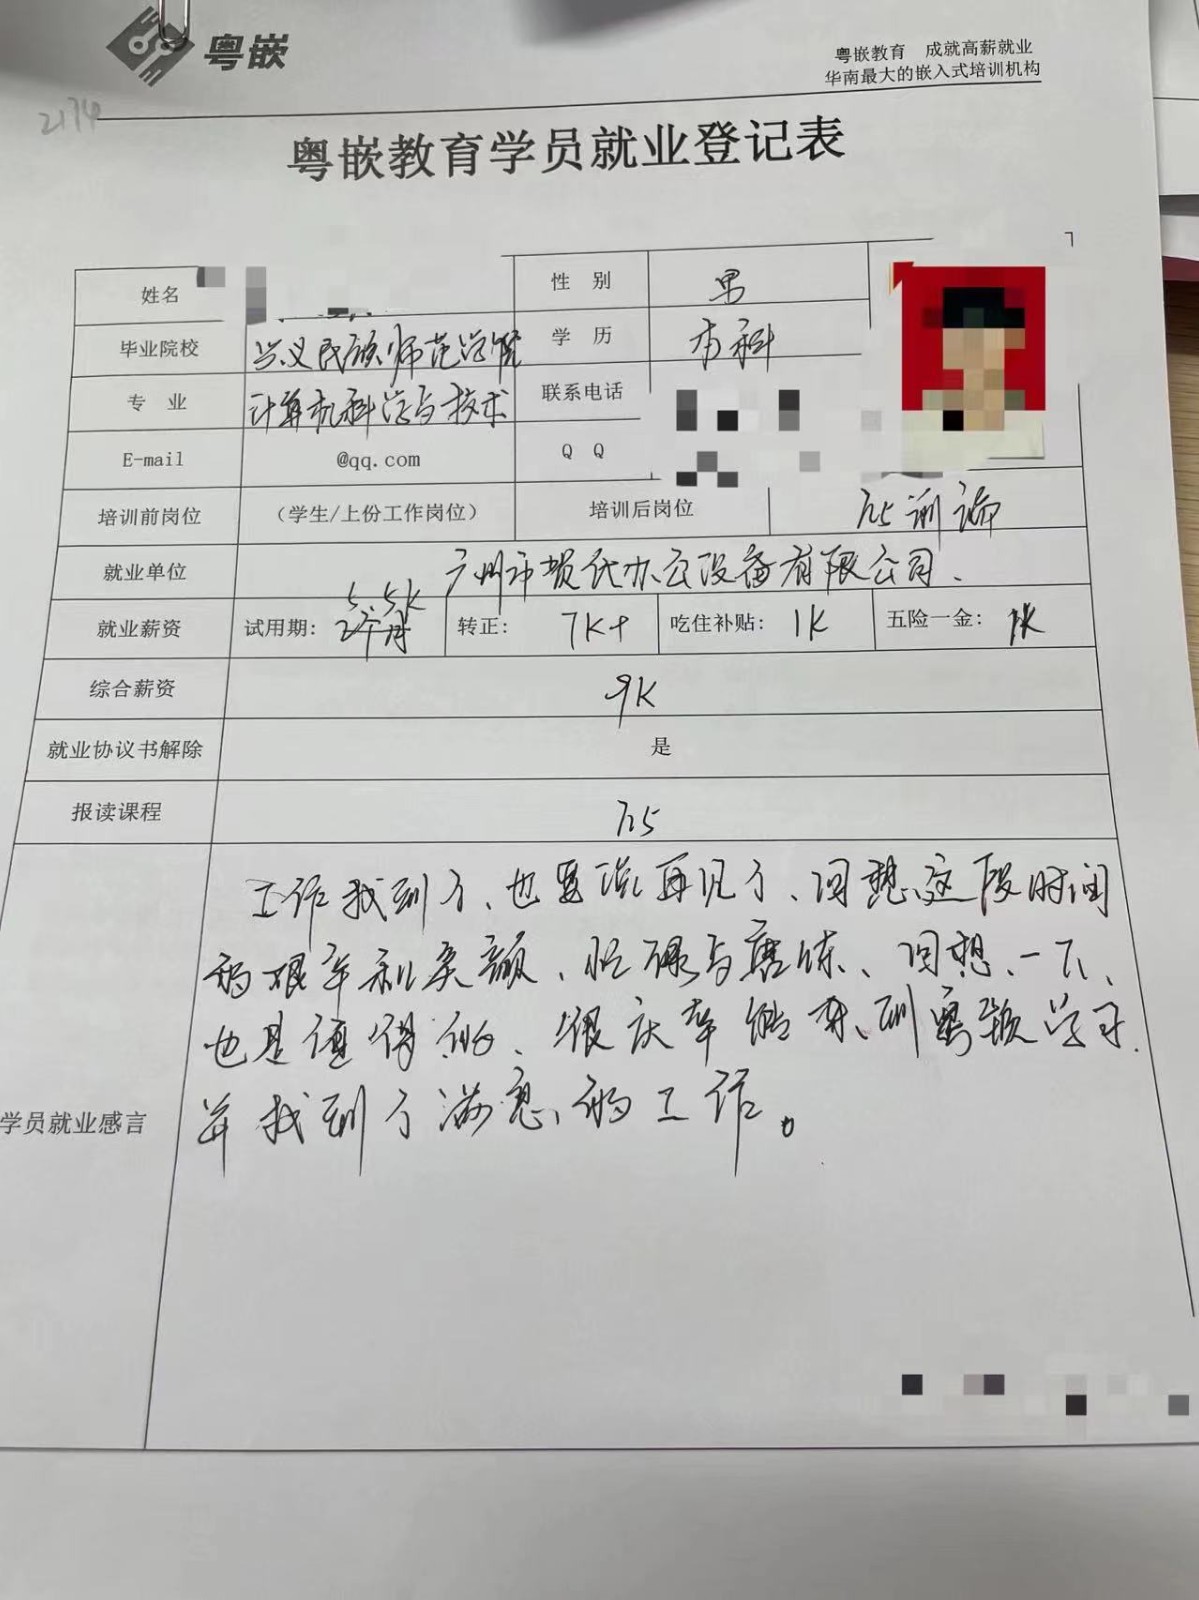 粤嵌
粤嵌教育 成就高薪就业
华南最大的嵌入式培训机构
2174
粤嵌教育学员就业登记表
姓名 性 别 男
毕业院校 兴义民族师范学院 学 历 本科
专 业 计算机科学与技术 联系电话
E-mail @qq.com Q Q
培训前岗位 (学生/上份工作岗位) 培训后岗位
就业单位 广州市 办公设备有限公司.
5.5K
就业薪资 试用期: 2个月 转正: 7K+ 吃住补贴: 1K 五险一金: 1K
综合薪资 9K
就业协议书解除 是
报读课程
工作找到了、也要说再见了、回想这段时间
的艰辛和笑颜、忙碌与磨练、回想一下、
也是值得的、很庆幸能来到粤嵌学习.
学员就业感言
并找到了满意的工作。